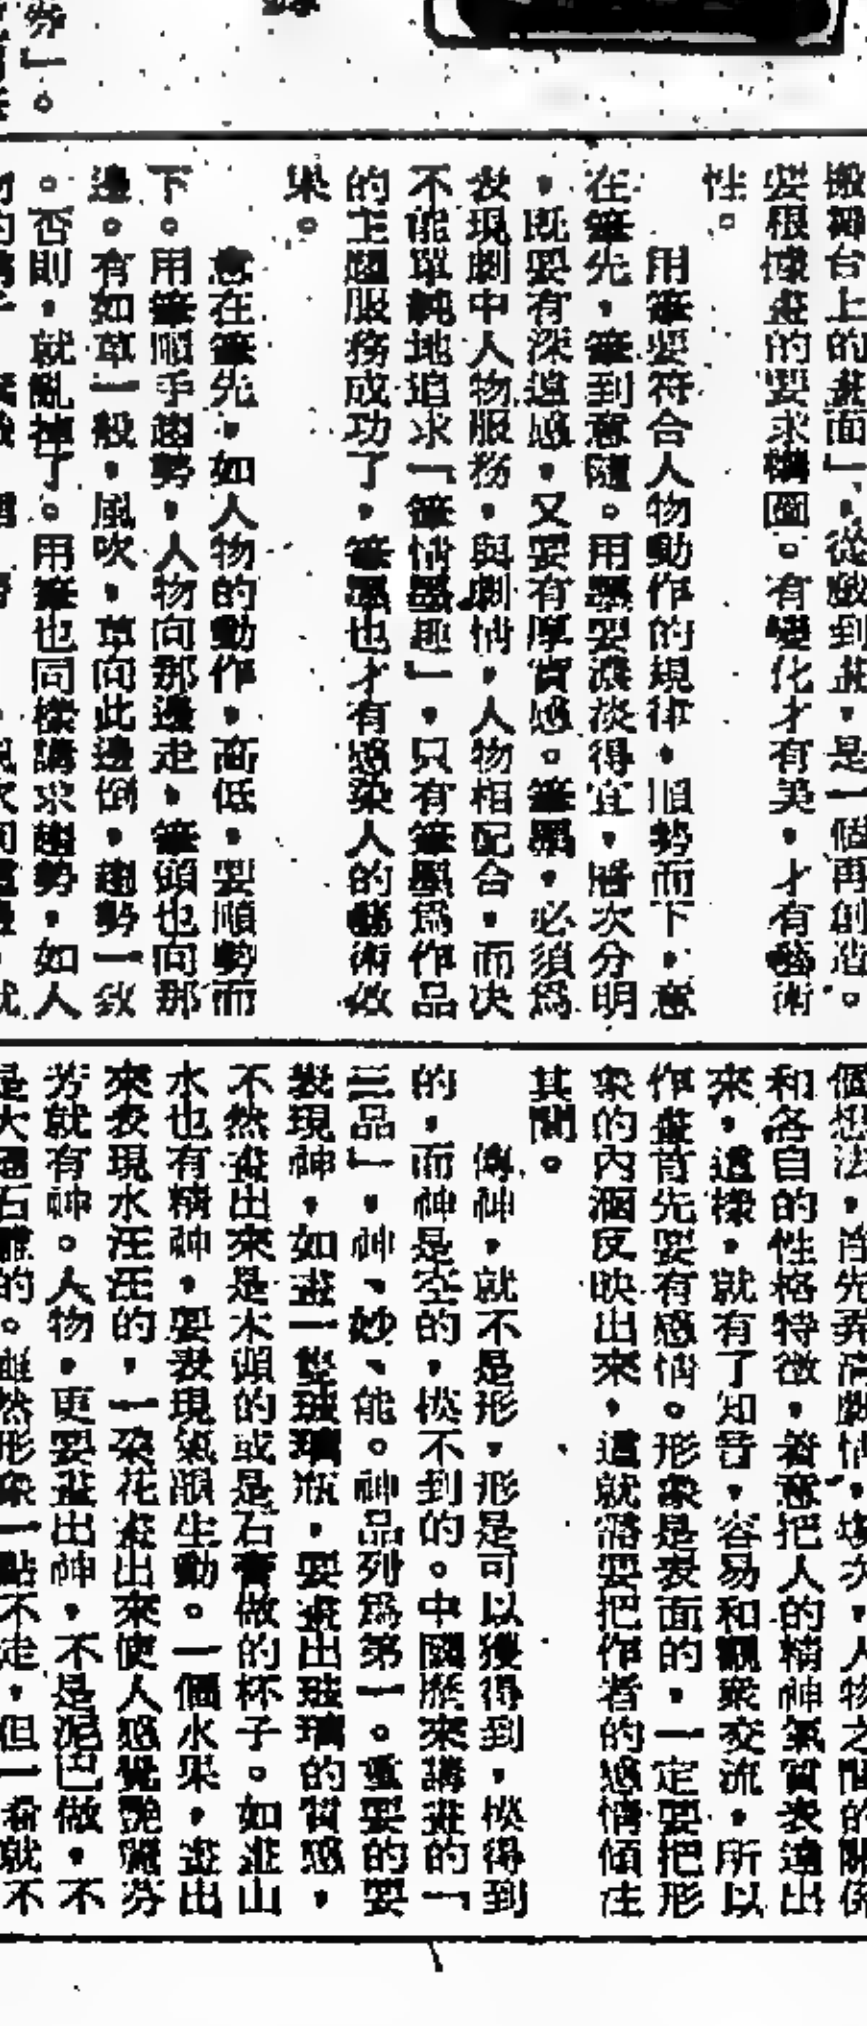 搬舞台上的畫面」,從戲到畫,是一個再創造。
要根據畫的要求構圖。有變化才有美,才有藝術
性。
用筆要符合人物動作的規律,順勢而下,意
在筆先,筆到意隨。用墨要濃淡得宜,層次分明
,既要有深遠感,又要有厚實感。筆墨,必須爲
表現劇中人物服務,與劇情,人物相配合,而决
不能單純地追求「筆情墨趣」,只有筆墨爲作品
的主題服務成功了,筆墨也才有感染人的藝術效
果。
意在筆先,如人物的動作,高低,要順勢而
下。用筆順手趨勢,人物向那邊走,筆頭也向那
邊。有如草一般,風吹,草向此邊倒,趨勢一致
。否則,就亂掉了。用筆也同樣講求趨勢,如人
個想法,首先弄清劇情,塲次,人物之間的關係
和各自的性格特徵,着意把人的精神氣質表達出
來,這樣,就有了知音,容易和觀衆交流,所以
作畫首先要有感情。形象是表面的,一定要把形
象的内涵反映出來,這就需要把作者的感情傾注
其間。
傳神,就不是形,形是可以獲得到,摸得到
的,而神是空的,摸不到的。中國歷來講畫的「
三品」,神、妙、能。神品列爲第一。重要的要
表現神,如畫一隻玻璃瓶,要畫出玻璃的質感,
不然畫出來是木頭的或是石膏做的杯子。如畫山
水也有精神,要表現氣韻生動。一個水果,畫出
來表現水汪汪的,一朶花畫出來使人感覺艷麗芬
芳就有神。人物,更要畫出神,不是泥巴做,不
是大理石雕的。雖然形象一點不走,但一看就不